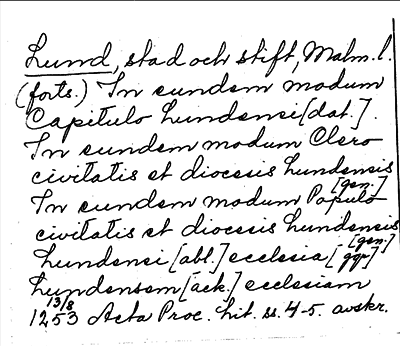 Lund, stad och stift, Malm. l.
(forts.) In eundem modum
Capitulo Lundensi [dat.].
In eundem modum Clero
civitatis et diocesis Lundensis
[gen.]
In eundem modum Populo
civitatis et diocesis Lundensis
[gen.]
Lundensi [abl.] ecclesia [ggr]
Lundensem [ack.] ecclesiam
13/8
1253 Acta Proc. Lit. ss. 4-5. avskr.